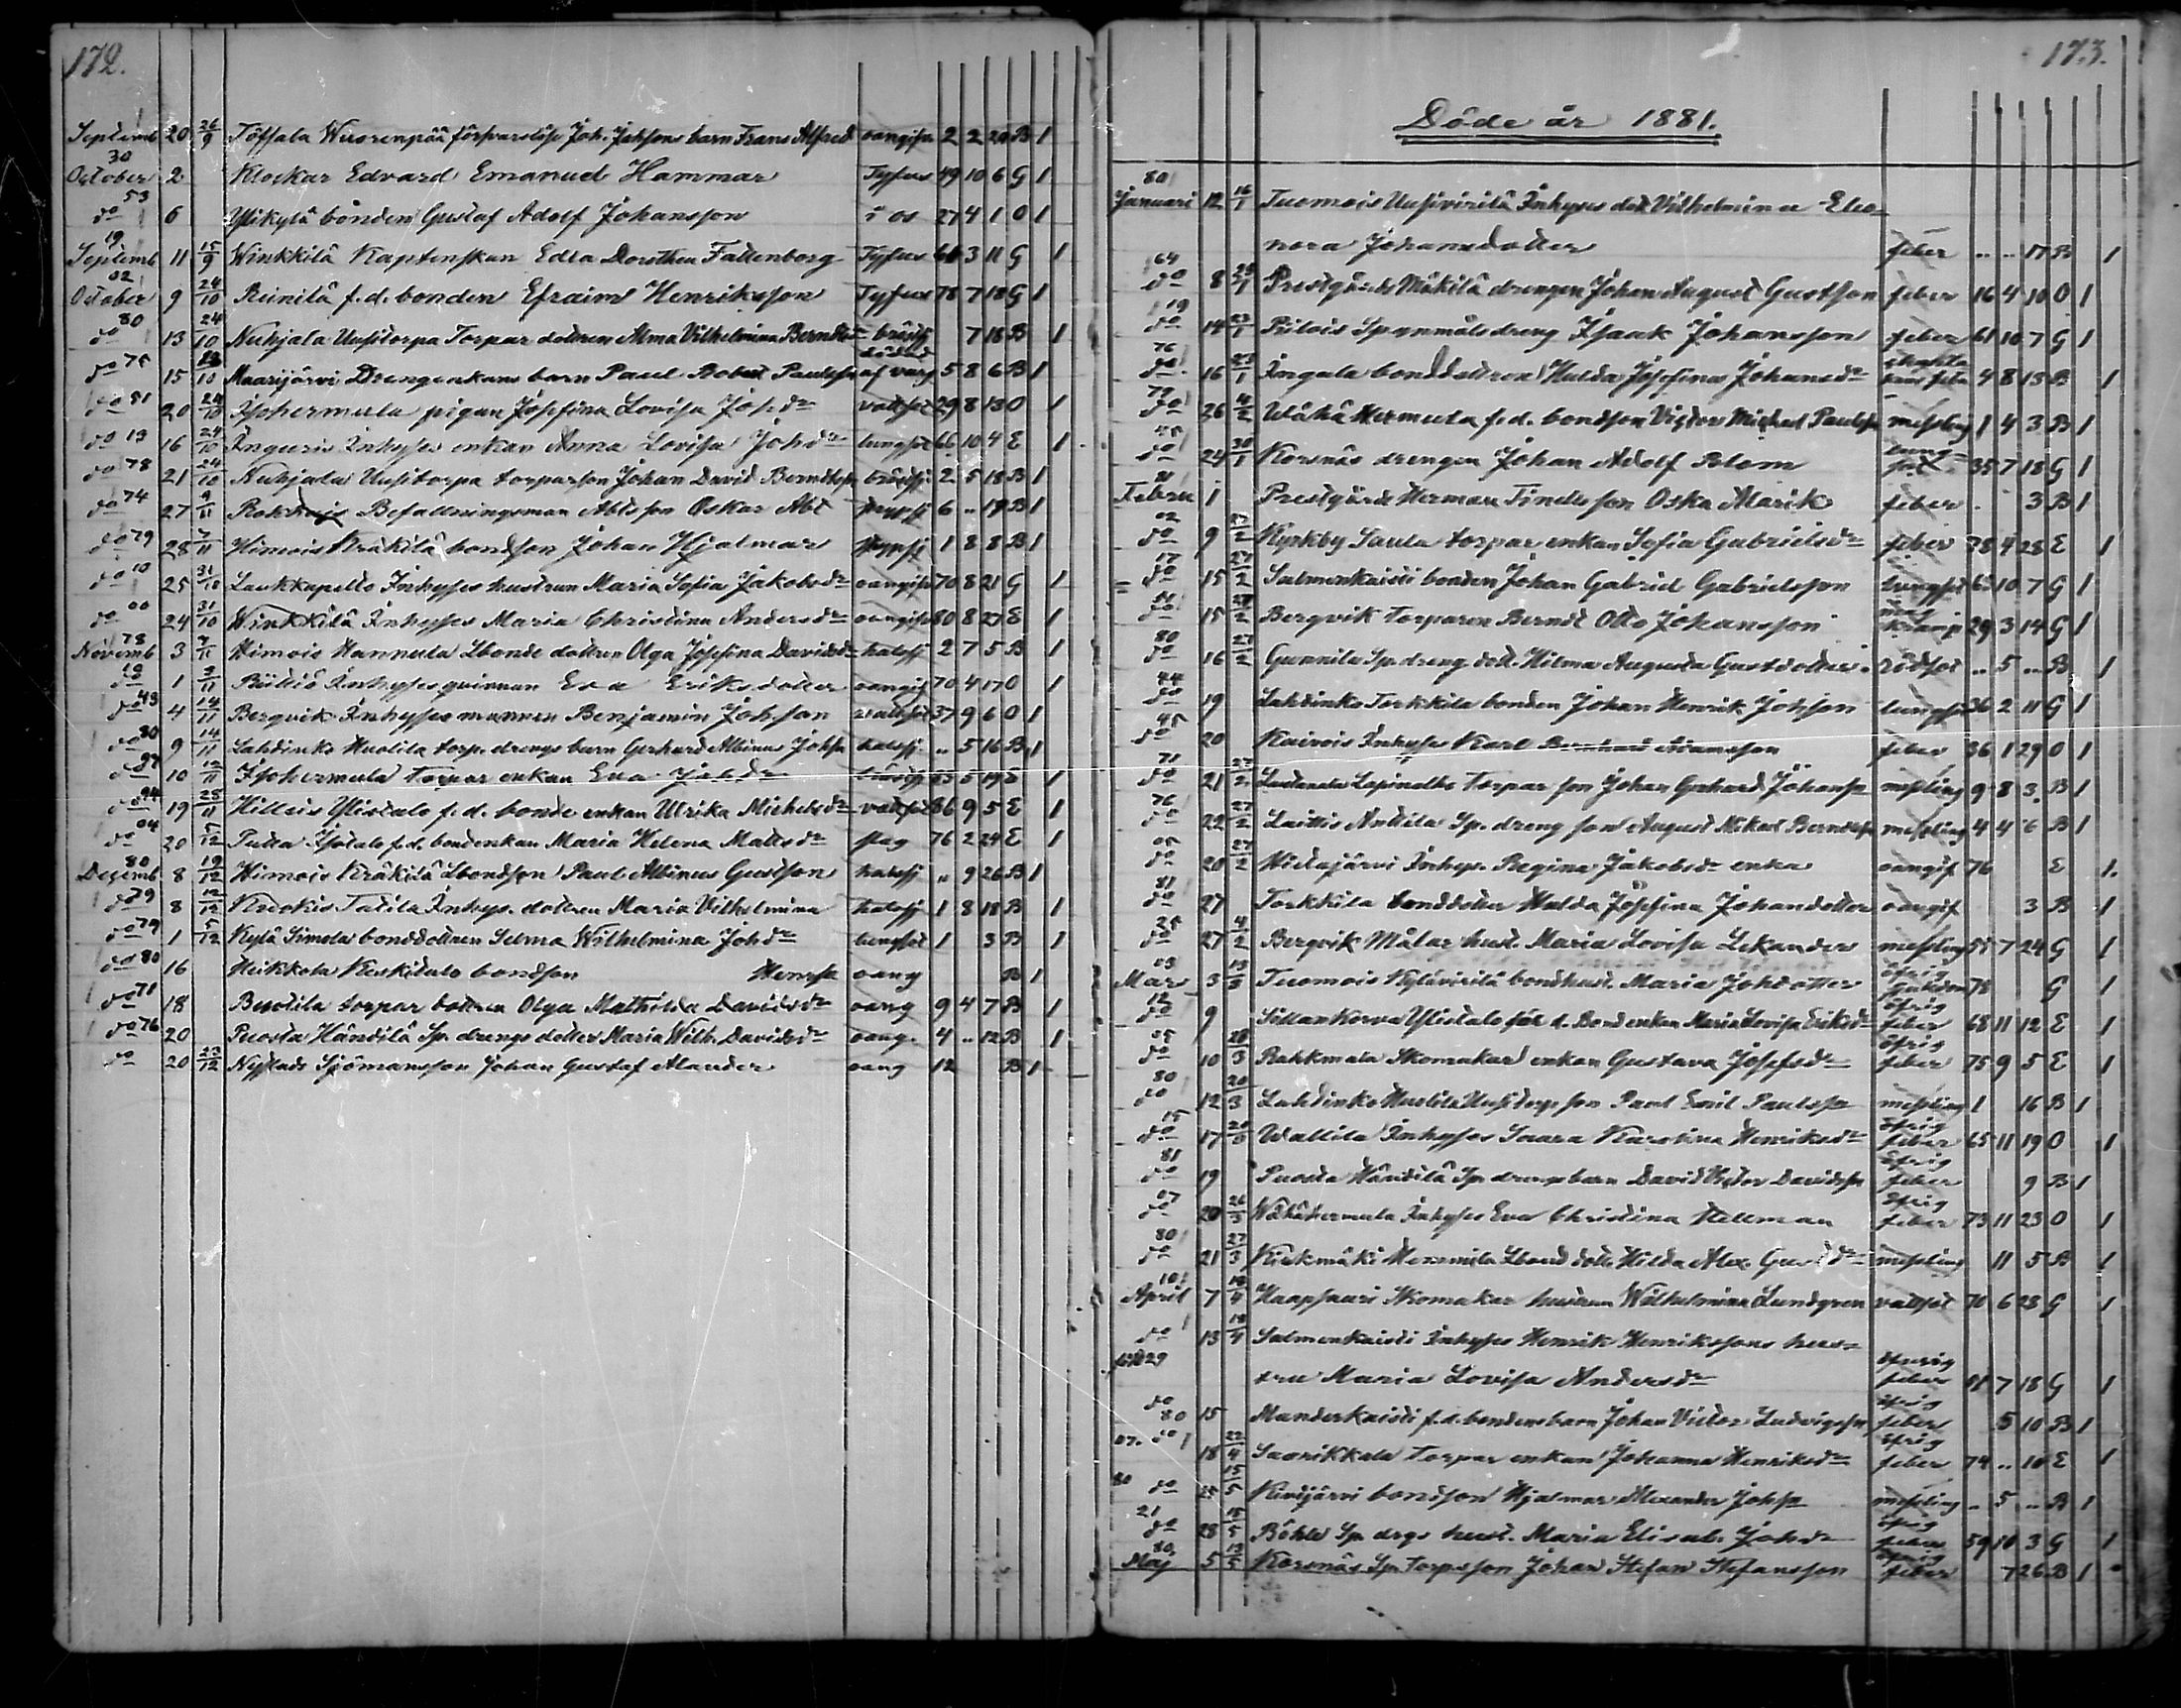 172.
Septemb 20 26/9 Töffala Wuorenpää Joh. Johssons barn Frans Alfred oangifn 2 2 20 B 1
30
October 2 Klockar Edvard Emanuel Hammar Tyfus 49 10 6 G 1
53
do 6 Ylikylä bonden Gustaf Adolf Johansson 27 4 1 O 1
19
Septemb 11 15/9 Winkkilä Kaptenskan Edla Dorothea Fattenborg Tyfus 61 3 11 G 1
02
October 9 24/10 Reinilä f. d. bonden Efraim Henriksson Tyfus 78 7 18 G 1
80
do 13 24/10 Nuhjala Uusitorpa Torpar dottren Alma Vilhelmina Berndtdr bröstsj 7 18 B 1
dödad
do 75 15 23/10 Maarijärvi Drengenkans barn Paul Robert Paulsson af varg 5 8 6 B 1
do 81 20 24/10 Isohermula pigan Josefina Lovisa Joh.dr vattsot 29 8 13 O 1
do 13 16 24/10 Ingeris Inhyses enkan Anna Lovisa Johdr lungsot 66 10 4 E 1
do 78 21 24/10 Nuhjala Uusitorpa torparson Johan David Berndtsson bröstsj 2 5 18 B 1
do 74 27 9/11 Befallningsman Abts son Oskar Abt 6 .. 19 B 1
do 79 28 7/11 Himois Kräkilä bondson Johan Hjalmar 1 8 8 B 1
do 10 25 31/10 Laukkapelto Inhyses hustrun Maria Sofia Jakobsdr oangifn 70 8 21 G 1
do 00 24 31/10 Winkkilä Inhyses Maria Christina Andersdr oangifn 80 8 27 E 1
78
Novemb 3 7/11 Himois Hannula Lbonde dottren Olga Josefina Davidsdr halssj 2 7 5 B 1
do 1 9/11 Inhyses qvinnan Eva Eriksdotter oangif 70 4 17 O 1
do 43 4 14/11 Bergvik Inhyses mannen Benjamin Johsson vattsot 37 9 6 O 1
do 80 9 14/11 Lahdinko Huolila torp. drengs barn Gerhard Albinus Johsson halssj. .. 5 16 B 1
do 97 10 12/11 Isohermula torpar enkan Eva Johdr 5 19 E 1
do 94 19 28/11 Hilleis Ylistalo f. d. bonde enkan Ulrika Michelsdr vattsot 86 9 5 E 1
do 04 20 5/12 Isotalo f.d. bondenkan Maria Helena Mattsdr slag 76 2 24 E 1
80
Decemb. 8 19/12 Himois Kräkilä Lbondson Paul Albinus Gustson halssj .. 9 26 B 1
do 79 8 12/12 Tatila Inhys. dottren Maria Vilhelmina halssj 1 8 18 B 1
do 79 1 5/12 Kylä Simola bonddottren Selma Wilhelmina Johdr lungsot 1 3 B 1
do 80 16 Heikkola Keskitalo bondson Henrss oang B 1
do 71 18 torpar dottren Olga Mathilda Davidsdr oang 9 4 7 B 1
do 76 20 Puosta Händilä Sp. drengs dotter Maria Wilh. Davidsdr oang. 4 .. 12 B 1
do 20 23/12 Nystads Sjömansson Johan Gustaf Alander oang 12 B 1
173.
Döde år 1881.
80
Januari 12 16/1 Tuomois Uusivirilä Inhyses dott Vilhelmina Eleo-
nora Johansdotter feber .. .. 17 B 1
64
do 8 23/1 Prestgårds Mäkilä drengen Johan August Gustsson feber 16 4 10 O 1
19
do 14 23/1 Pilois Spanmåls dreng Isaak Johansson feber 61 10 7 G 1
76
do 16 23/1 Ingala bonddottren Hulda Josefina Johansdr 4 8 13 B 1
79
do 26 4/2 Wähä Hermula f. d. bondson Victor Michael Paulsson messling 1 4 3 B 1
45
do 24 30/1 Korsnäs drengen Johan Adolf Blom lungsot 35 7 18 G 1
81
Febru 1 Prestgårds Herman Tinells son Oska Marik feber 3 B 1
02
do 9 27/2 Kyrkby Saula torpar enkan Sofia Gabrielsdr feber 78 4 28 E 1
17
do 15 27/2 Salmenkaisti bonden Johan Gabriel Gabrielsson lungsot 63 10 7 G 1
51
do 15 27/2 Bergvik torparen Berndt Otto Johansson magkramp 29 3 14 G 1
80
do 16 27/2 Gunnila Sp. dreng dott. Hilma Augusta Gustdotter rödsot .. 5 .. B 1
44
do 19 Lahdinko Torkkila bonden Johan Henrik Johsson lungsot 36 2 11 G 1
45
do 20 Kairois Inhyses Karl Adamsson feber 36 1 29 O 1
71
do 21 27/2 torpar son Johan Gerhard Johanss messling 9 8 3 B 1
76
do 22 27/2 Laitis Anttila Sp. dreng son August Mikael Berndtsson messling 4 4 6 B 1
05
do 20 27/2 Hiidajärvi Inhys. Regina Jakobsdr enka oangif 76 E 1.
81
do 27 Torkkila bonddotter Hulda Josefina Johandotter oangif 3 B 1
25
do 27 4/2 Bergvik Målar hust. Maria Lovisa Lekander messling 55 7 24 G 1
03
Mar 3 13/3 Tuomois Kyläviriliä bondhust. Maria Johdotter 78 G 1
12
do 9 Sillankorva Ylistalo för d. Bondenkan Maria Lovisa Eriksdr öfrig feber 68 11 12 E 1
05
do 10 20/3 Rahkmala Skomakar enkan Gustava Josefsdr öfrig feber 75 9 5 E 1
80
do 12 20/3 Lahdinko Huolila Uusitorp son Paul Emil Paulsson messling 1 16 B 1
15
do 17 20/3 Wallila Inhyses Saara Karolina Henriksdr öfrig feber 65 11 19 O 1
81
do 19 Puosta Händilä Sp. drengs barn David Victor Davidsson öfrig feber 9 B 1
07
do 20 26/3 Wähähermula Inhyses Eva Christina Hellman öfrig feber 73 11 23 O 1
80
do 21 27/3 Kiukmäki Mennila Lbond dott. Hilda Alex. Gustdr messling 11 5 B 1
10
April 7 18/4 Haapsaari Skomakar hustrun Wilhelmina Lundgren vattsot 70 6 28 G 1
do 13 18/4 Salmenkaisti Inhyses Henrik Henrikssons hus-
född 29 tru Maria Lovisa Andersdr öfrig feber 51 7 18 G 1
do 80 15 Manderkaisti f. d. bondens barn Johan Victor Ludvigsson öfrig feber 5 10 B 1
07. do 18 22/4 Saarikkala Torpar enkan Johanna Henriksdr öfrig feber 74 .. 10 E 1
80 do 25 15/5 Kivijärvi bondson Hjalmar Alexander Johss messling .. 5 .. B 1
21
do 28 15/5 Böhle Sp. drgs hust. Maria Elisab. Johdr öfrig feber 59 10 3 G 1
80
Maj 5 13/5 Korsnäs Sp. Torpsson Johan Stefan Stefansson öfrig feber 7 26 B 1